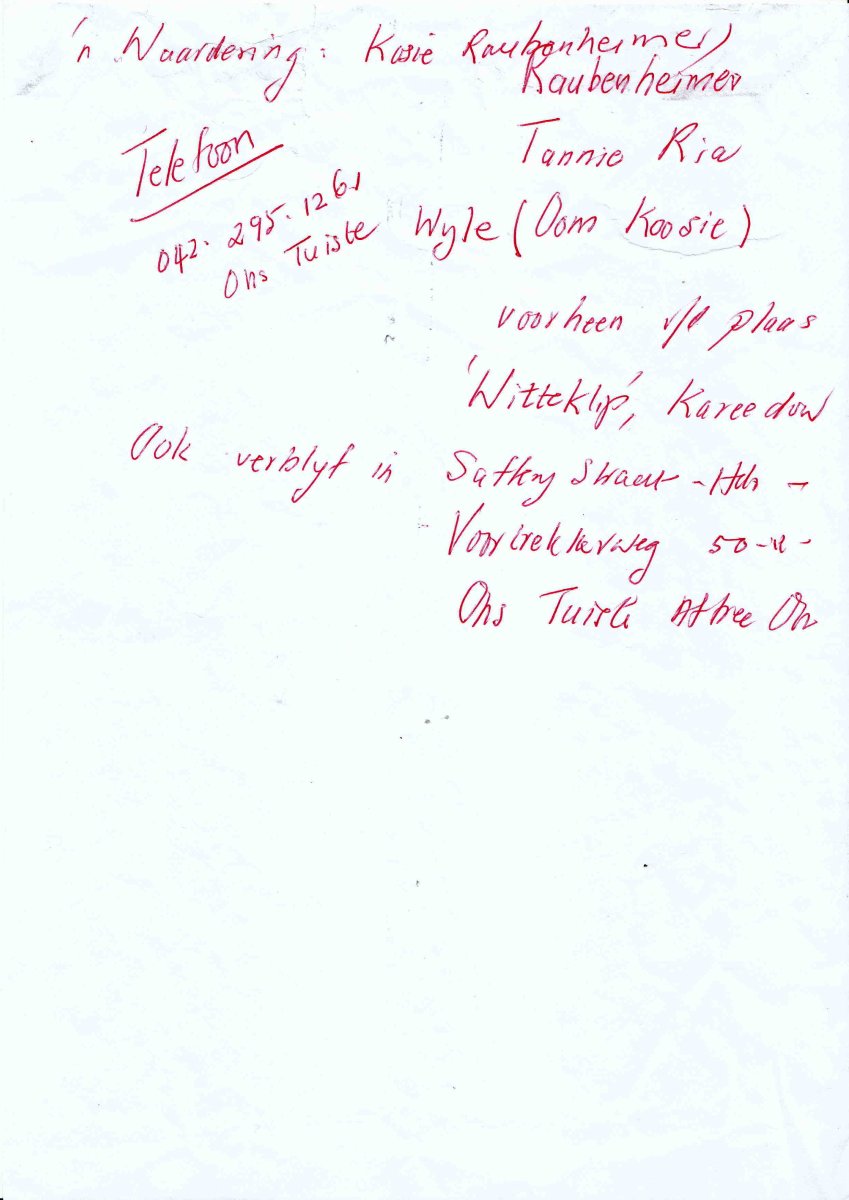 'n Waardering: Kosie Raubenheimer)
Raubenheimer
Tannie Ria
Telefoon
042. 295. 1261
Ons Tuiste
Wyle (Oom Koosie)
voorheen v/d plaas
'Witteklip', Kareedouw
Ook verblyf in Straat
Voortrekkerweg 50
Ons Tuiste Aftree Oh